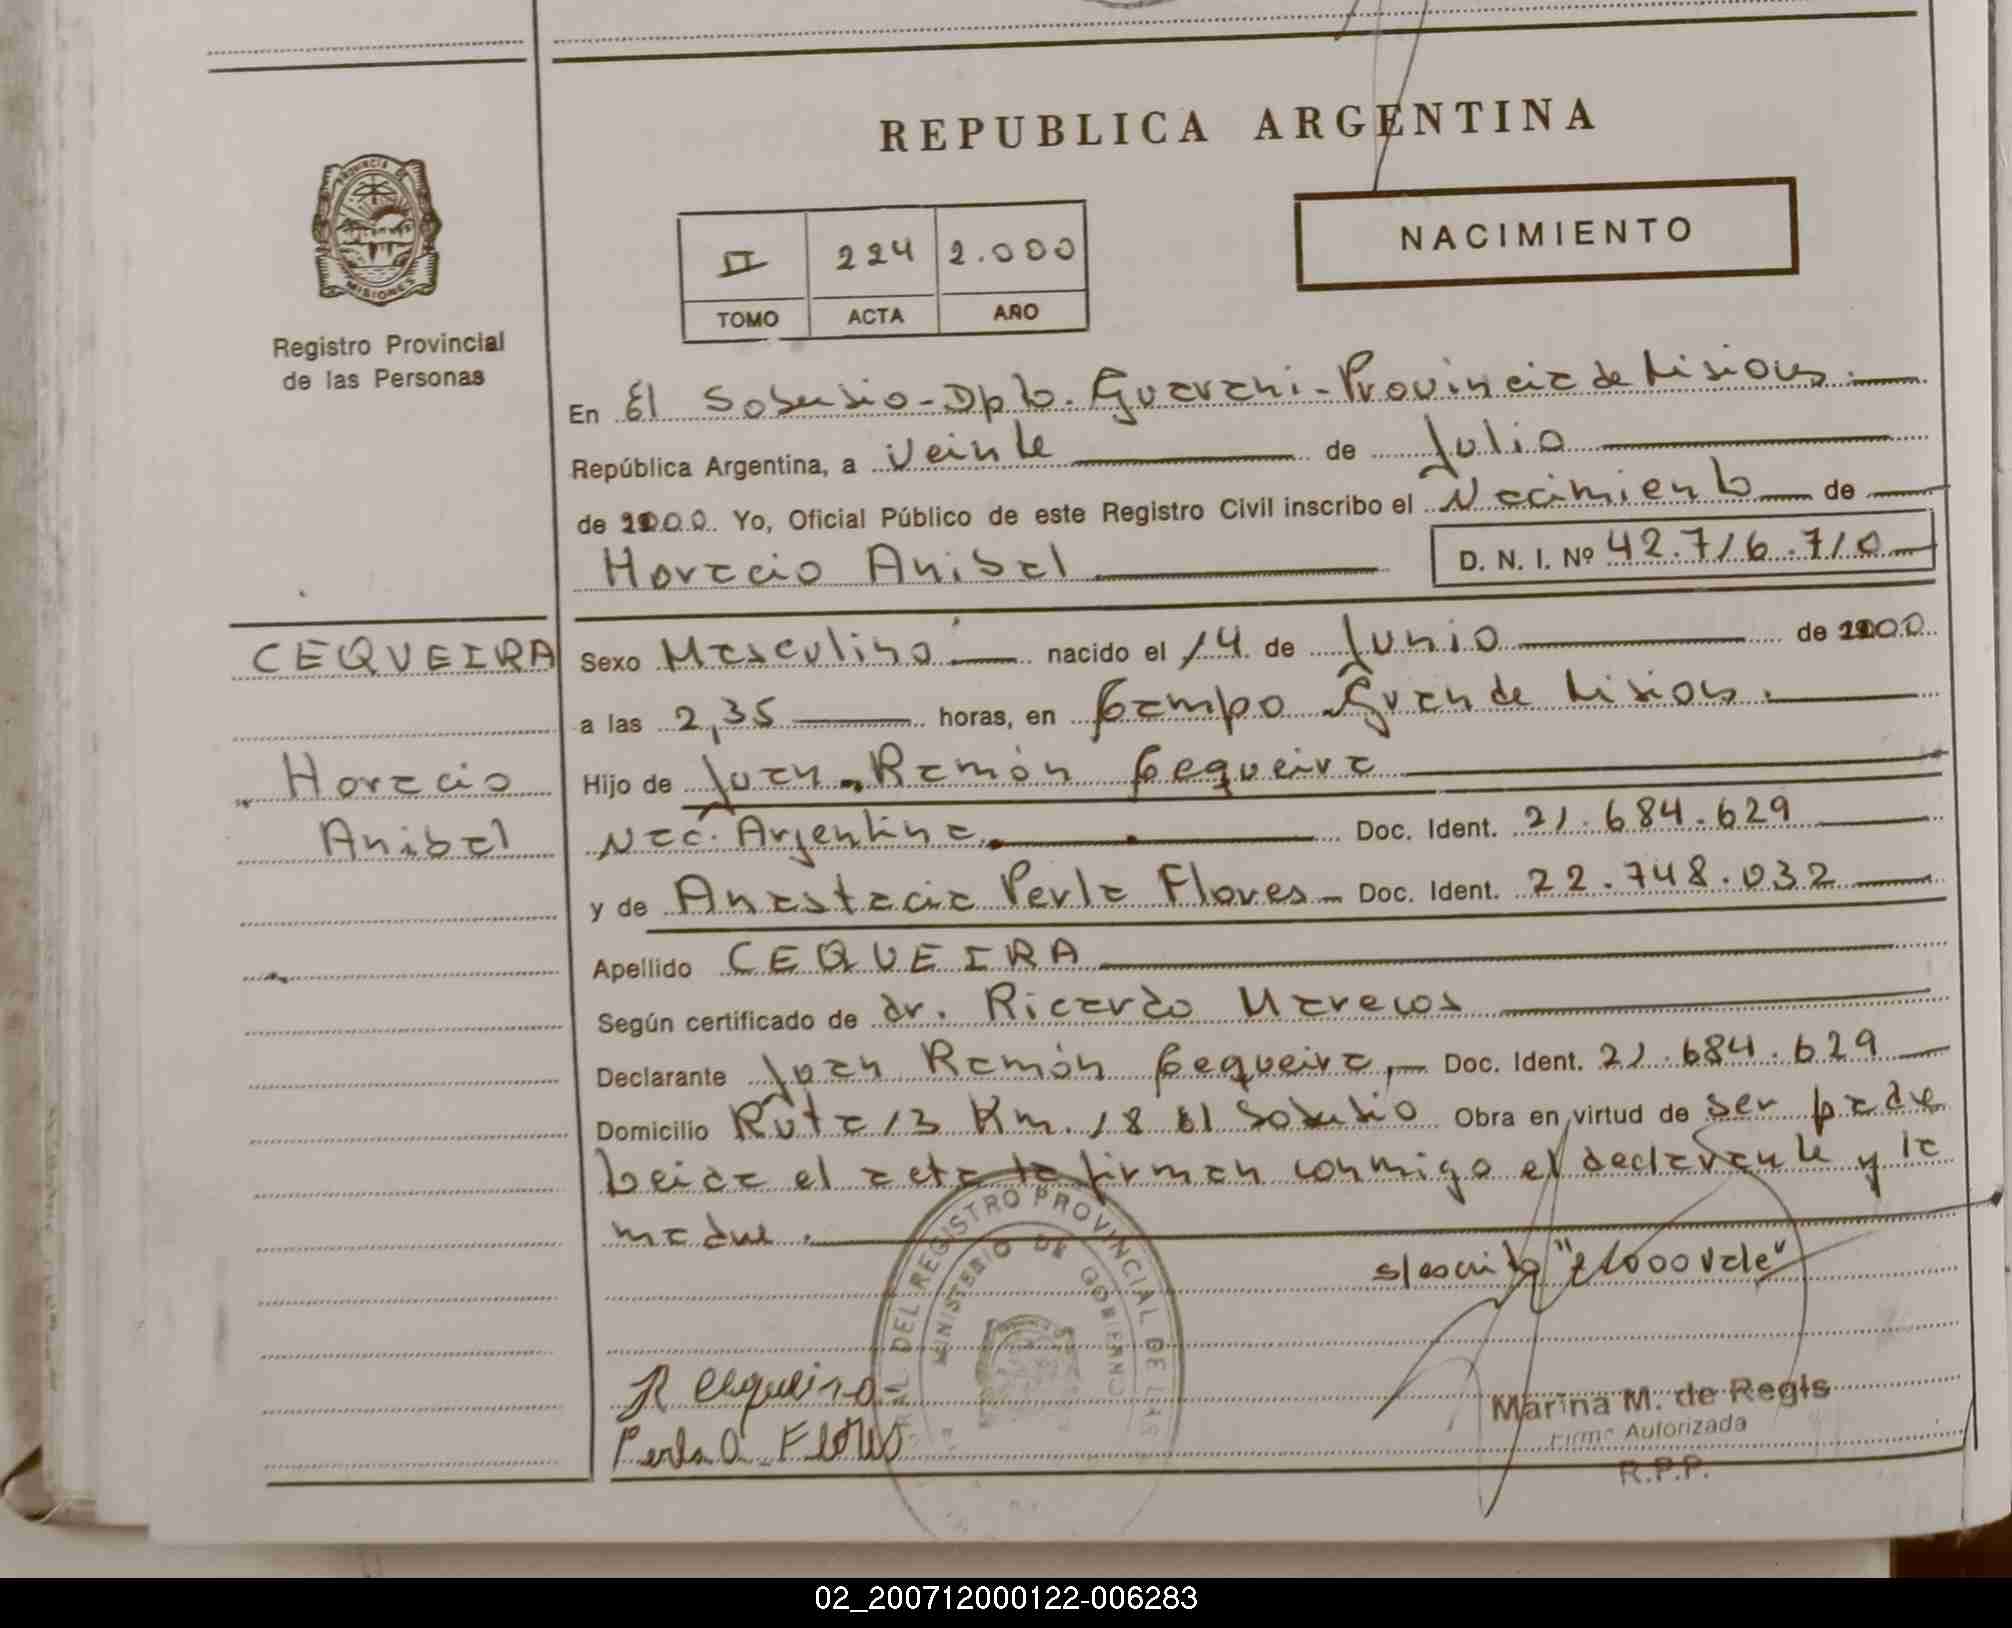 REPUBLICA ARGENTINA
PROVINCIA DE
MISIONES
Registro Provincial
de las Personas
II 224 2.000
TOMO ACTA AÑO
NACIMIENTO
En El Soberbio - Dpto. Guarani - Provincia de Misiones.
República Argentina, a Veinte de Julio
de 2000. Yo, Oficial Público de este Registro Civil inscribo el Nacimiento de
Horacio Anibal
D. N. I. Nº 42.716.710
CEQUEIRA
Horacio
Anibal
Sexo Masculino nacido el 14 de Junio de 2000
a las 2,35 horas, en Campo Grande Misiones.
Hijo de Juan Ramón Cequeira
Nac. Argentina. Doc. Ident. 21.684.629
y de Anastacia Perla Flores - Doc. Ident. 22.748.032
Apellido CEQUEIRA
Según certificado de dr. Ricardo Marecos
Declarante Juan Ramón Cequeira, Doc. Ident. 21.684.629
Domicilio Ruta 13 Km. 18 El Soberbio Obra en virtud de ser padre
Leida el acta la firman conmigo el declarante y la
madre.
s/escrito "2000 vale"
REGISTRO PROVINCIAL DE LAS
MINISTERIO DE GOBIERNO
R Cequeira
Perla A. Flores
Marina M. de Regis
Firma Autorizada
R.P.P.
02_200712000122-006283